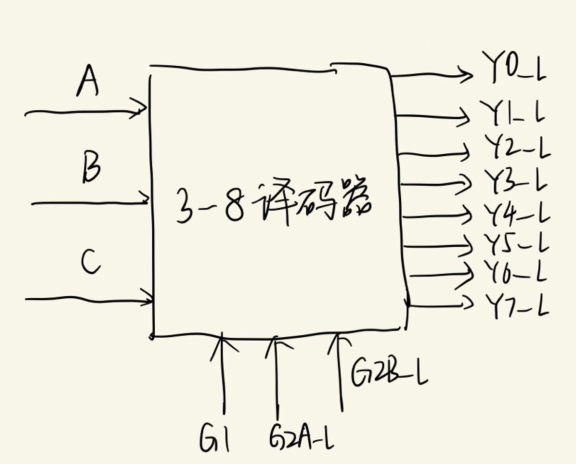 A
B
C
3-8译码器
Y0_L
Y1_L
Y2_L
Y3_L
Y4_L
Y5_L
Y6_L
Y7_L
G1
G2A_L
G2B_L